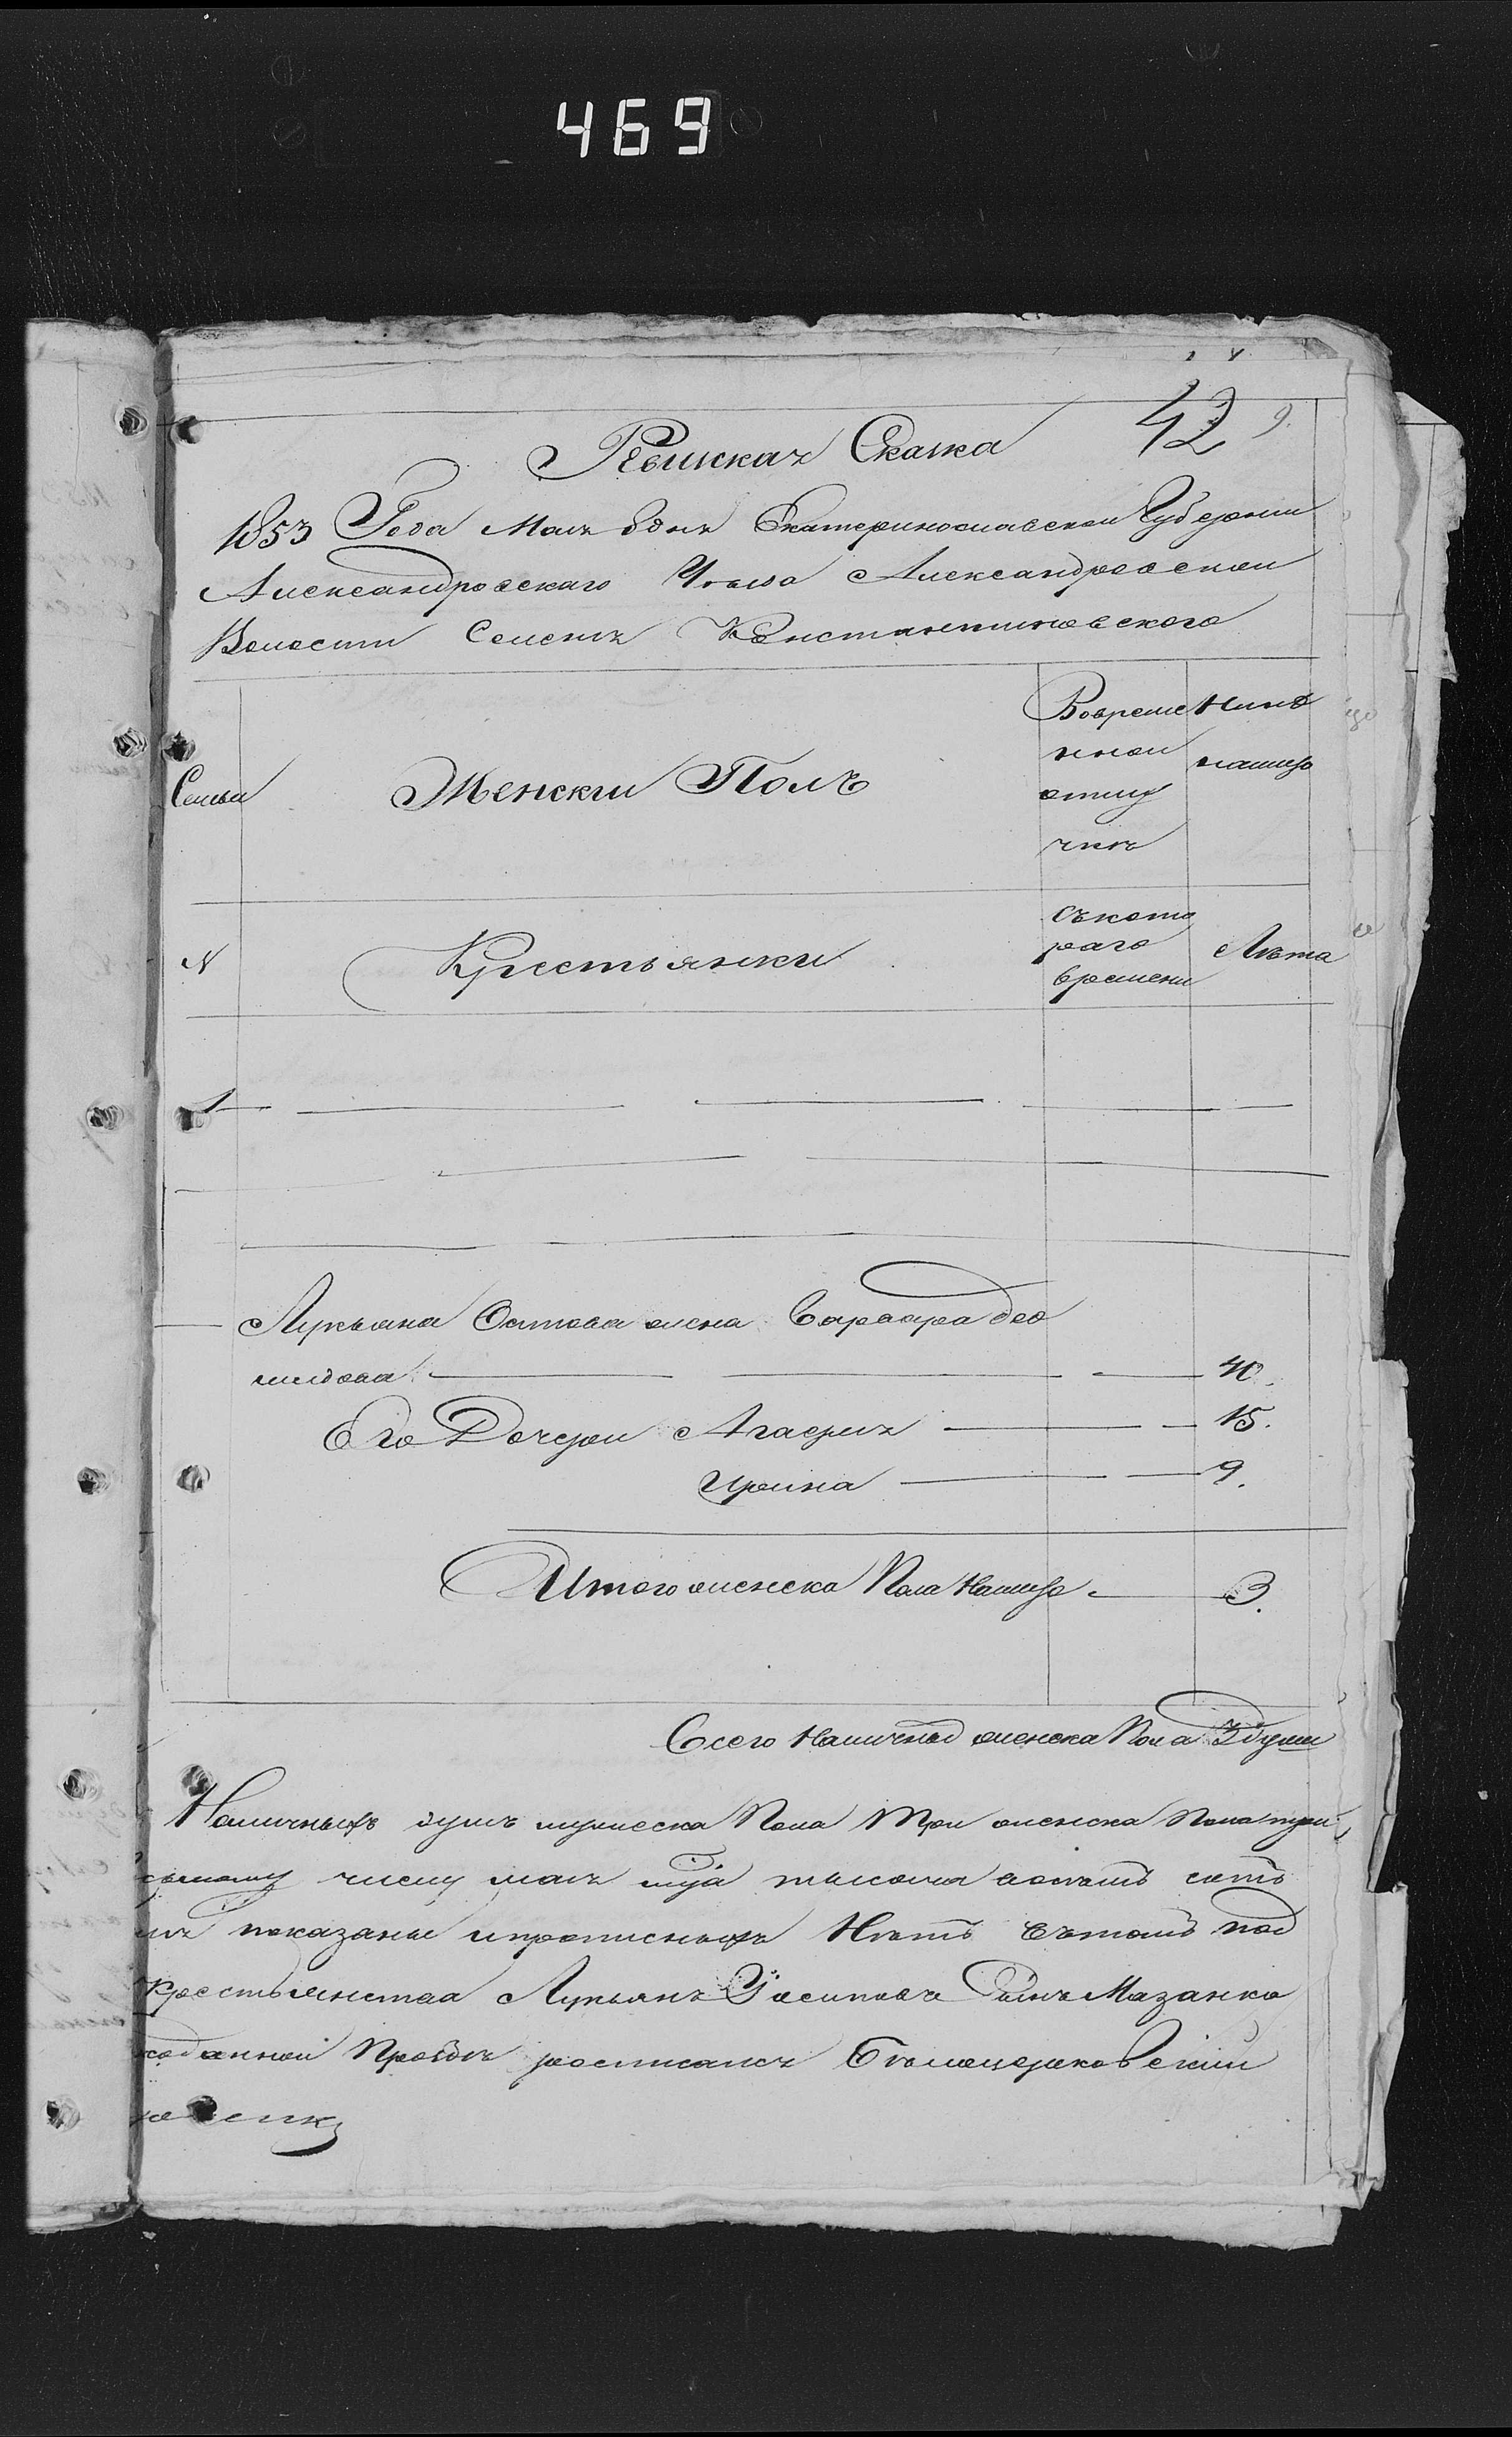 469
42
Ревискаꙗ Скаска
1853 Года Маꙗ дня Екатеринославскои Губернии
Александровскаго Уѣзда Александровскои
Волости Селенꙗ Константиновского
Семьи
Женскии Полъ
Вовреме
нной
отлу
чкѣ
Нинѣ
налицо
N
Крестьянки
съкото
раго
времени
Лѣта
1
Лукьяна Остова жена Варвара део
мидова 40.
Его Дочери Агафиꙗ 15.
Ирина 9.
Итого женска Пола Налицо 3.
Всего Наличных женска Пола 3 души
Наличныхъ душъ мужеска Пола три женска Пола три
числу маꙗ тысяча
показаны ипрописныхъ Нѣтъ въ томъ под
Крестьянства Лукьянъ Мазанко